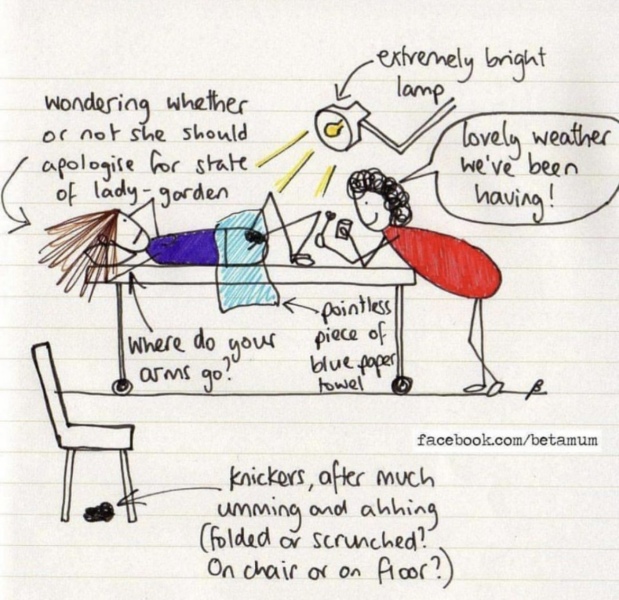 extremely bright
lamp
wondering whether
or not she should
apologise for state
of lady-garden
lovely weather
we've been
having!
where do your
arms go?
pointless
piece of
blue paper
towel
facebook.com/betamum
knickers, after much
umming and ahhing
(folded or scrunched?
On chair or on floor?)